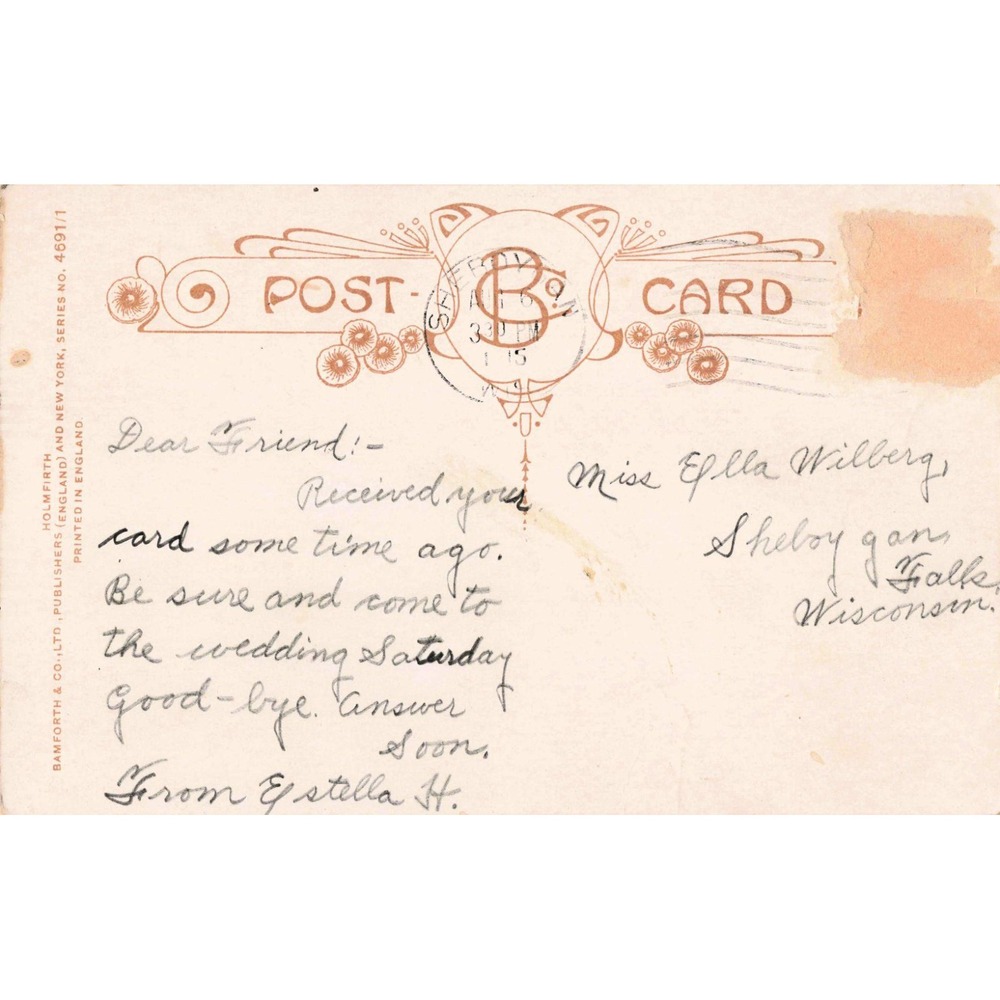 POST CARD
B Co.
SHEBOYGAN
6
330 PM
15
HOLMFIRTH
BAMFORTH & CO., LTD., PUBLISHERS (ENGLAND) AND NEW YORK, SERIES NO. 4691/1
PRINTED IN ENGLAND.
Dear Friend:-
Received your
card some time ago.
Be sure and come to
the wedding Saturday
Good-bye. Answer
Soon.
From Estella H.
Miss Ella Wilberg,
Sheboygan
Falls,
Wisconsin.